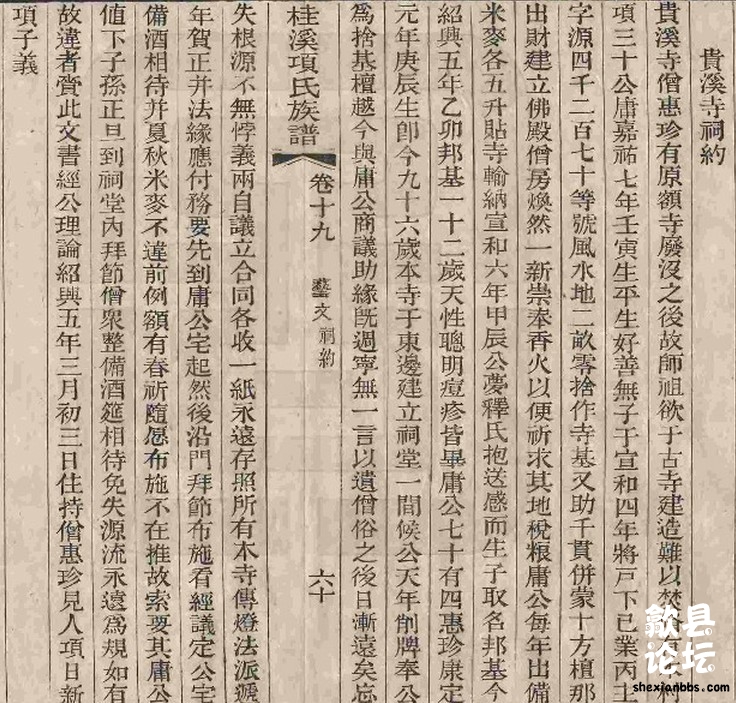 貴溪寺祠約
貴溪寺僧惠珍有原額寺廢沒之後故師祖欲于古寺建造難以焚
項三十公庸嘉祐七年壬寅生平生好善無子于宣和四年將戸下已業丙
字源四千二百七十等號風水地二畝零捨作寺基又助千貫併蒙十方檀那
出財建立佛殿僧房煥然一新崇奉香火以便祈求其地稅粮庸公每年出備
米麥各五升貼寺輸納宣和六年甲辰公夢釋氏抱送感而生子取名邦基今
紹興五年乙卯邦基一十二歲天性聰明痘疹皆畢庸公七十有四惠珍康定
元年庚辰生卽今九十六歲本寺于東邊建立祠堂一間候公天年削牌奉公
爲捨基檀越今與庸公商議助緣旣過寧無一言以遺僧俗之後日漸遠矣忘
桂溪項氏族譜 卷十九 藝文 祠約 六十
失根源不無悖義兩自議立合同各收一紙永遠存照所有本寺傳燈法派遞
年賀正并法緣應付務要先到庸公宅起然後沿門拜節布施看經議定公宅
備酒相待并夏秋米麥不違前例額有春祈隨愿布施不在推故索要其庸公
値下子孫正旦到祠堂內拜節僧衆整備酒筵相待免失源流永遠爲規如有
故違者賫此文書經公理論紹興五年三月初三日住持僧惠珍見人項日新
項子義
歙县
论坛
shexianbbs.com